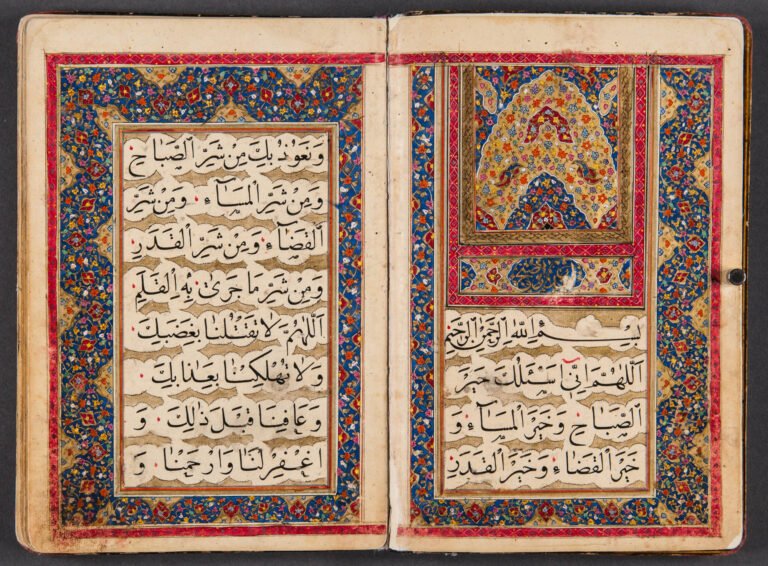 بِسْمِ اللهِ الرَّحْمٰنِ الرَّحِيمِ
اَللّٰهُمَّ اِنّى سْئَلُكَ خَيْرَ
الصَّبَاحِ وَخَيْرَ الْمَسَآءِ وَ
خَيْرَ الْقَضَاءِ وَخَيْرَ الْقَدَرِ
وَنَعُوذُ بِكَ مِنْ شَرِّ الصَّبَاحِ
وَمِنْ شَرِّ الْمَسَآءِ وَمِنْ شَرِّ
الْقَضَاءِ وَمِنْ شَرِّ الْقَدَرِ
وَمِنْ شَرِّ مَا جَرىٰ بِهِ الْقَلَمِ
اَللّٰهُمَّ لَا تَقْتُلْنَا بِغَضَبِكَ
وَلَا تُهْلِكْنَا بِعَذَابِكَ
وَعَافِنَا قَبْلَ ذٰلِكَ وَ
اغْفِرْ لَنَا وَارْحَمْنَا وَ